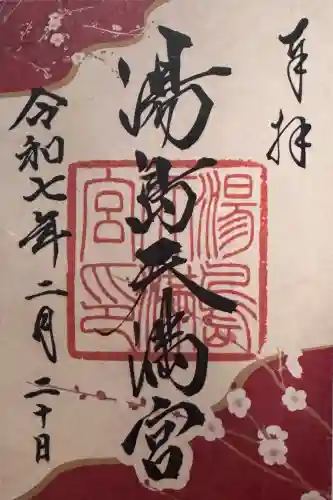 奉拝
湯島天満宮
湯島
天満
宮印
令和七年二月二十日